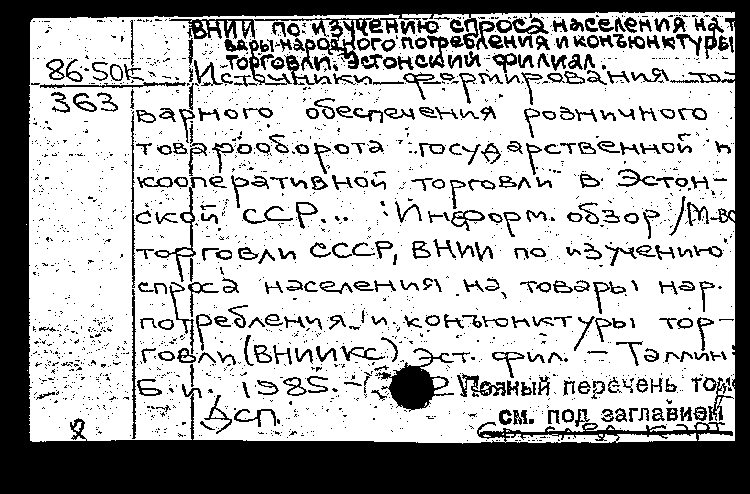 ВНИИ по изучению спроса населения на т
вары народного потребления и конъюнктуры
торговли. Эстонский филиал.
86-50к
363
Источники формирования то-
варного обеспечения розничного
товарооборота государственной и
кооперативной торговли в Эстон-
ской ССР... : Информ. обзор / М-во
торговли СССР, ВНИИ по изучению
спроса населения на товары нар.
потребления и конъюнктуры тор-
говли (ВНИИКС) Эст. фил. - Таллин:
Б. и. 1985. -
Полный перечень томо
Дсп.
см. под заглавием
См. след. карт
2